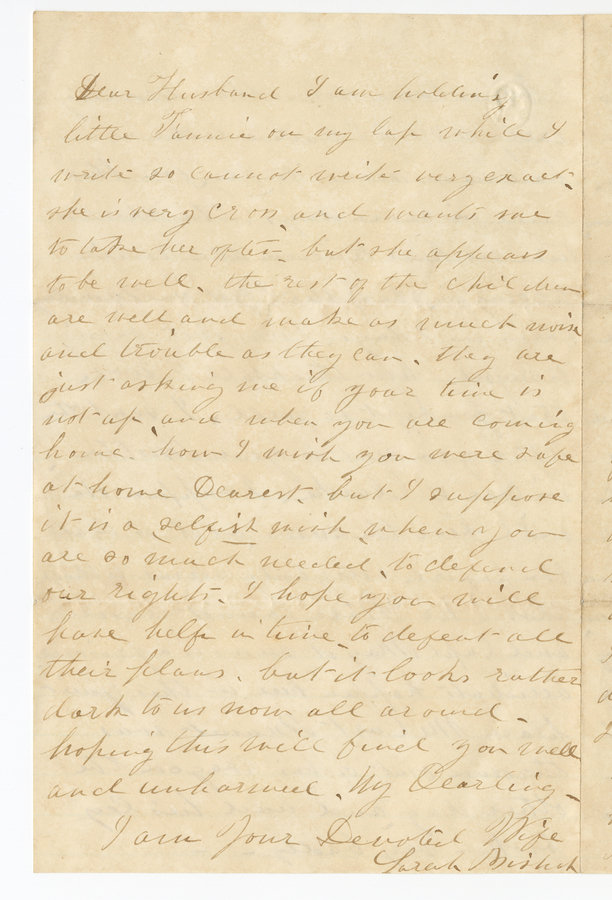 Dear Husband I am holding
little Fannie on my lap while I
write so cannot write very exact.
she is very cross and wants me
to take her often but she appears
to be well. the rest of the children
are well and make as much noise
and trouble as they can. they are
just asking me if your time is
not up, and when you are coming
home. how I wish you were safe
at home Dearest. but I suppose
it is a selfish wish when you
are so much needed, to defend
our rights. I hope you will
have help in time to defeat all
their plans. but it looks rather
dark to us now all around.
hoping this will find you well
and unharmed. My Dearling.
I am Your Devoted Wife
Sarah